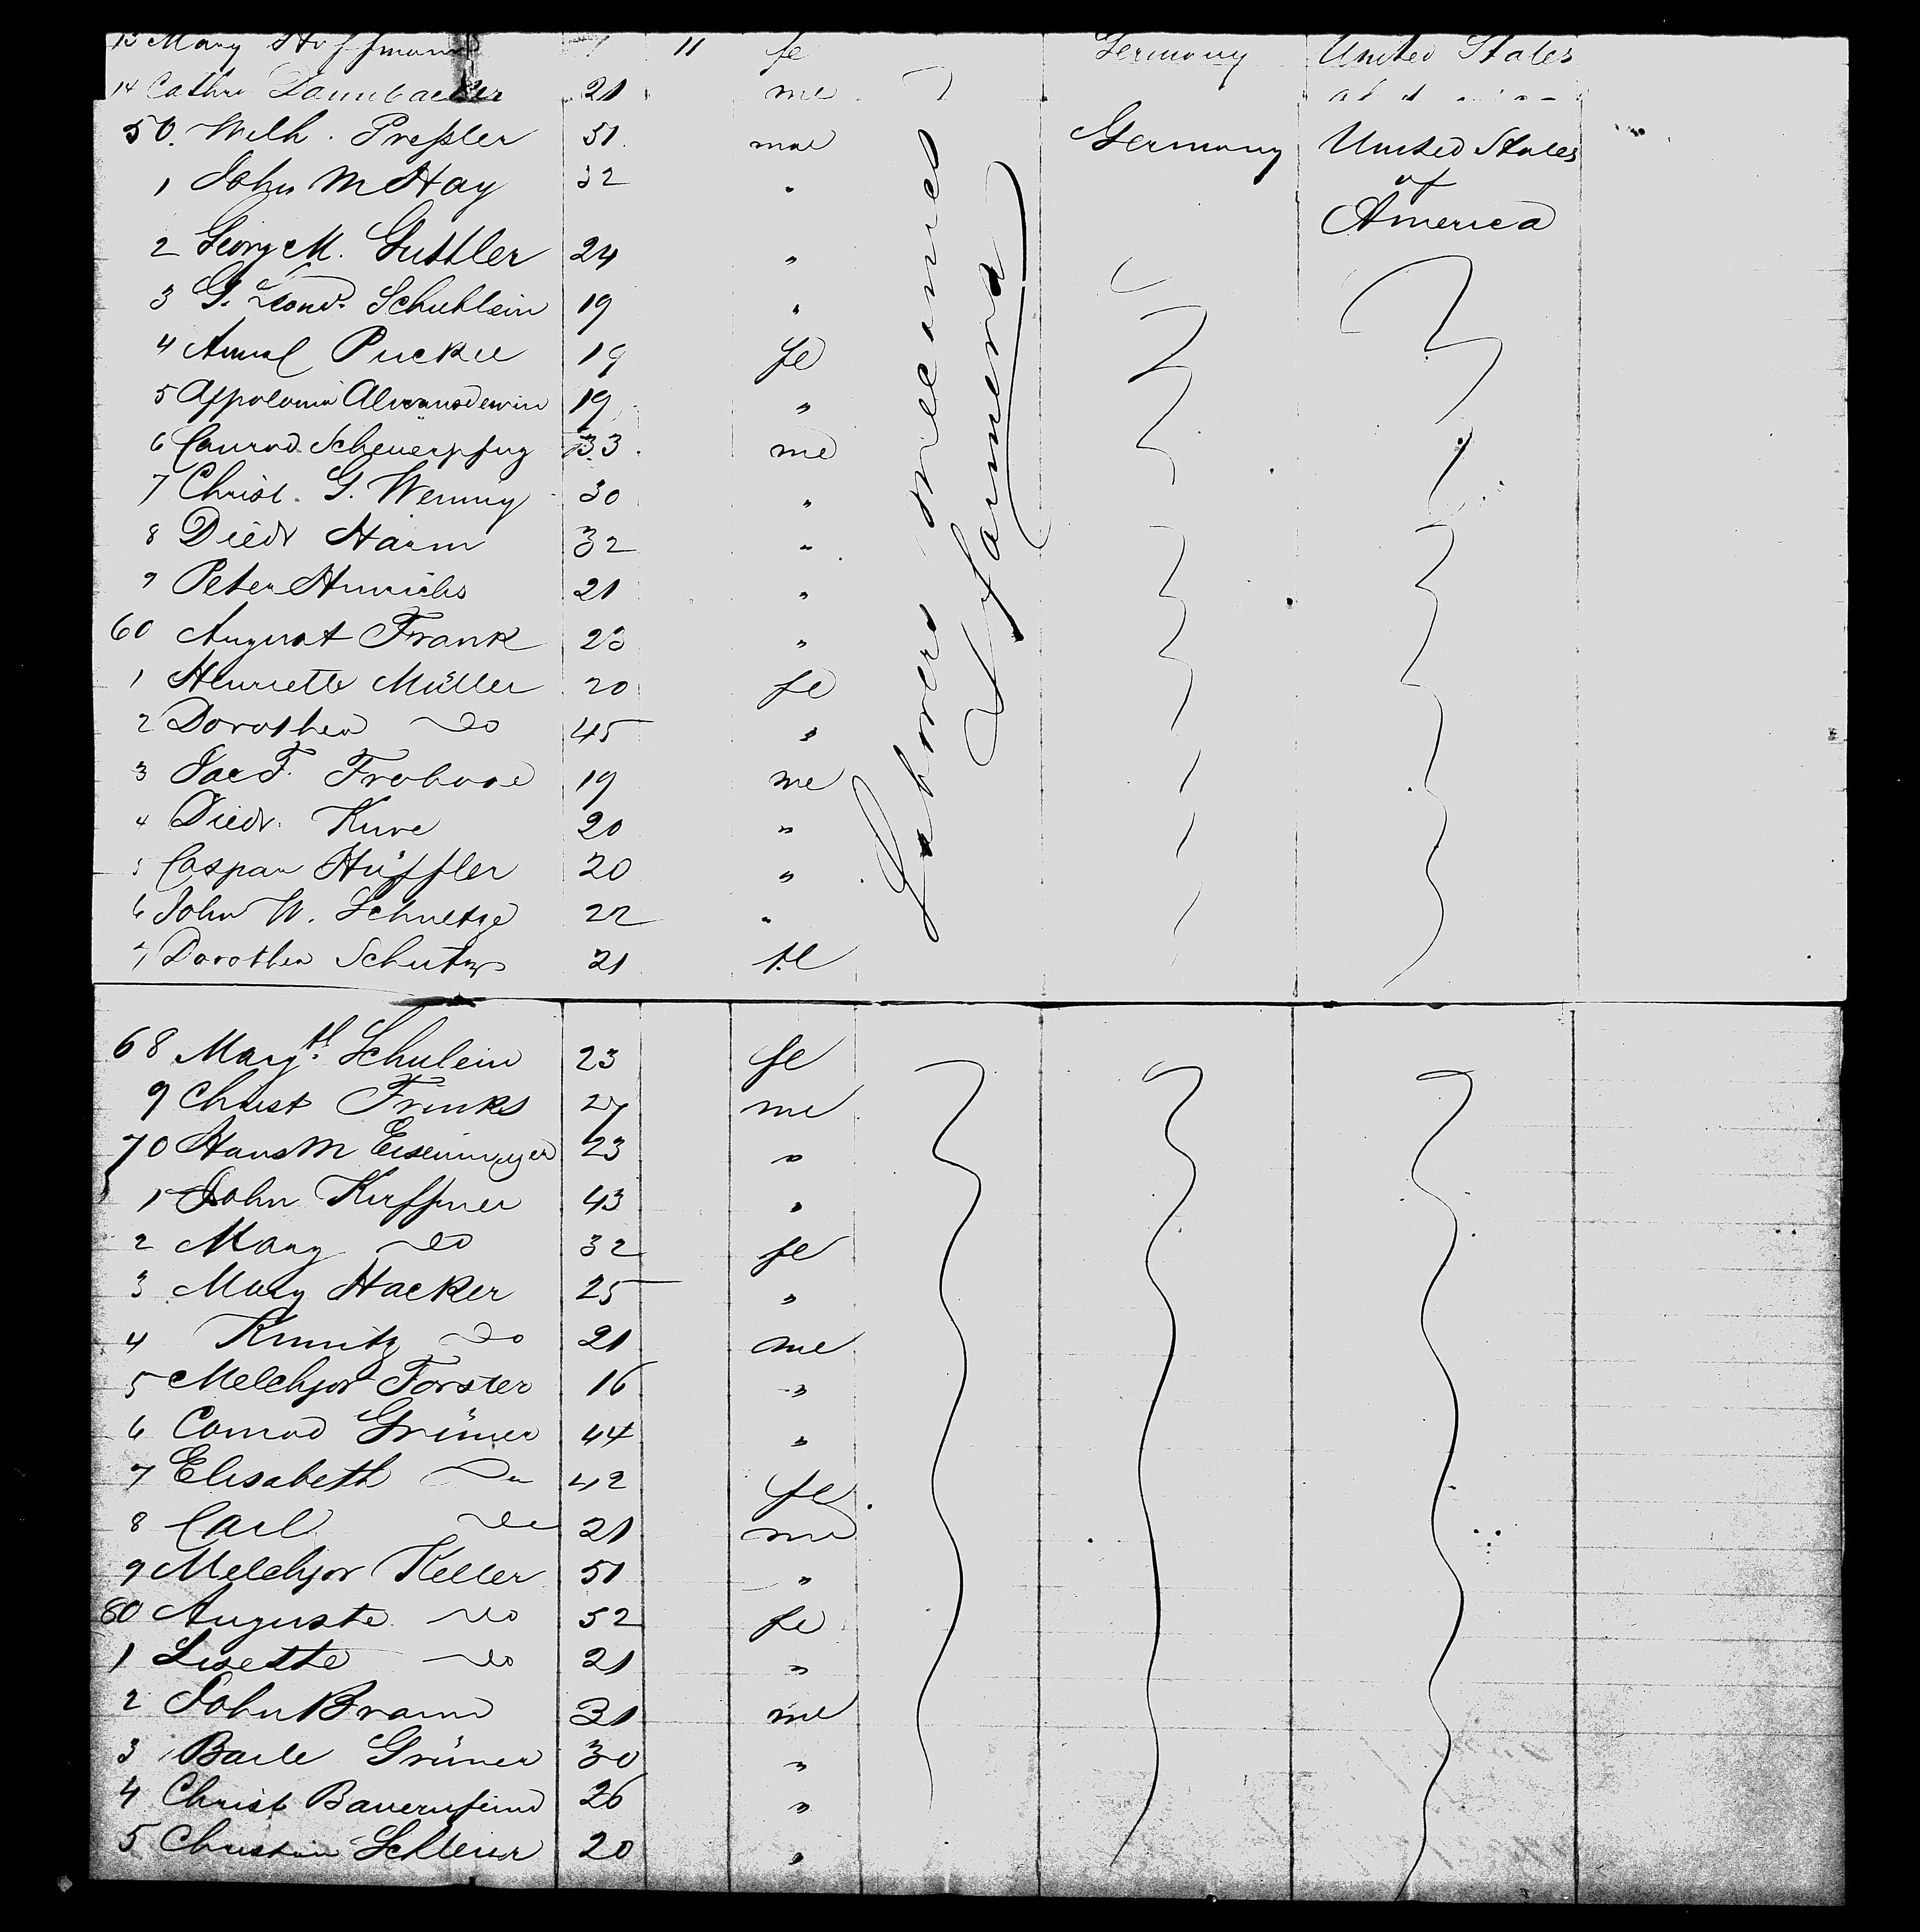 13 Mary Hoffmann 11 fe Germany United States
14 Cathr 21 me
50. Wilh. Preßler 51 mae Germany United States
1 John M Hay 32 " of
America
2 Georg M. Guttler 24 "
3 G. Leond. Schuhlein 19 "
4 Puckee 19 fe
5 Appolonia 19 "
6 Conrad Scheuerpfug 33 me
7 Christ. G. Wenning 30 "
8 Diedr Harm 32 "
9 Peter Hinrichs 21 "
60 August Frank 23 "
1 Henriette Müller 20 fe
2 Dorothea do 45 "
3 Jac F. Frobose 19 me
4 Diedr. Kure 20 "
5 Caspar Hüffler 20 "
6 John W. Schultze 22 "
7 Dorothea Schutz 21 fe
Labrores Mecanics
& Farmers
68 Marg.th Schulein 23 fe
9 Christ Frinks 27 me
70 Hans M Eisenmeyer 23 "
1 John Kuffner 43 "
2 Mary do 32 fe
3 Mary Hacker 25 "
4 Kunitz do 21 me
5 Melchjor Forster 16 "
6 Conrad Grüner 44 "
7 Elisabeth do 42 fe
8 Carl do 21 me
9 Melchjor Keller 51 "
80 Auguste do 52 fe
1 Lisette do 21 "
2 John Braun 31 me
3 Barle Grüner 30 "
4 Christ Bauernfeind 26 "
5 Christian Schleier 20 "